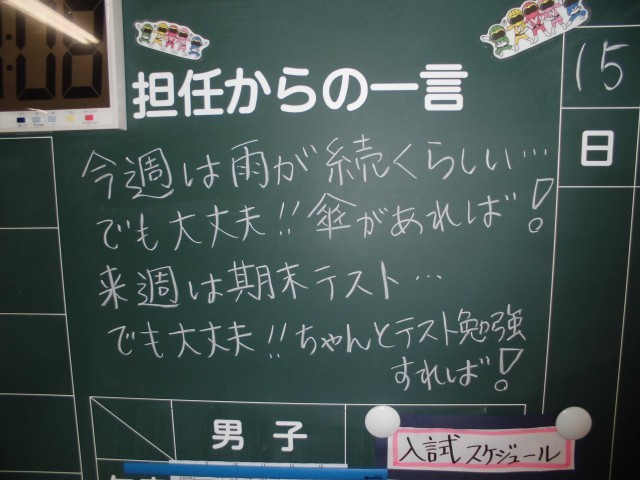 担任からの一言
15
日
今週は雨が続くらしい…
でも大丈夫!!傘があれば!
来週は期末テスト…
でも大丈夫!!ちゃんとテスト勉強
すれば!
男子
入試スケジュール